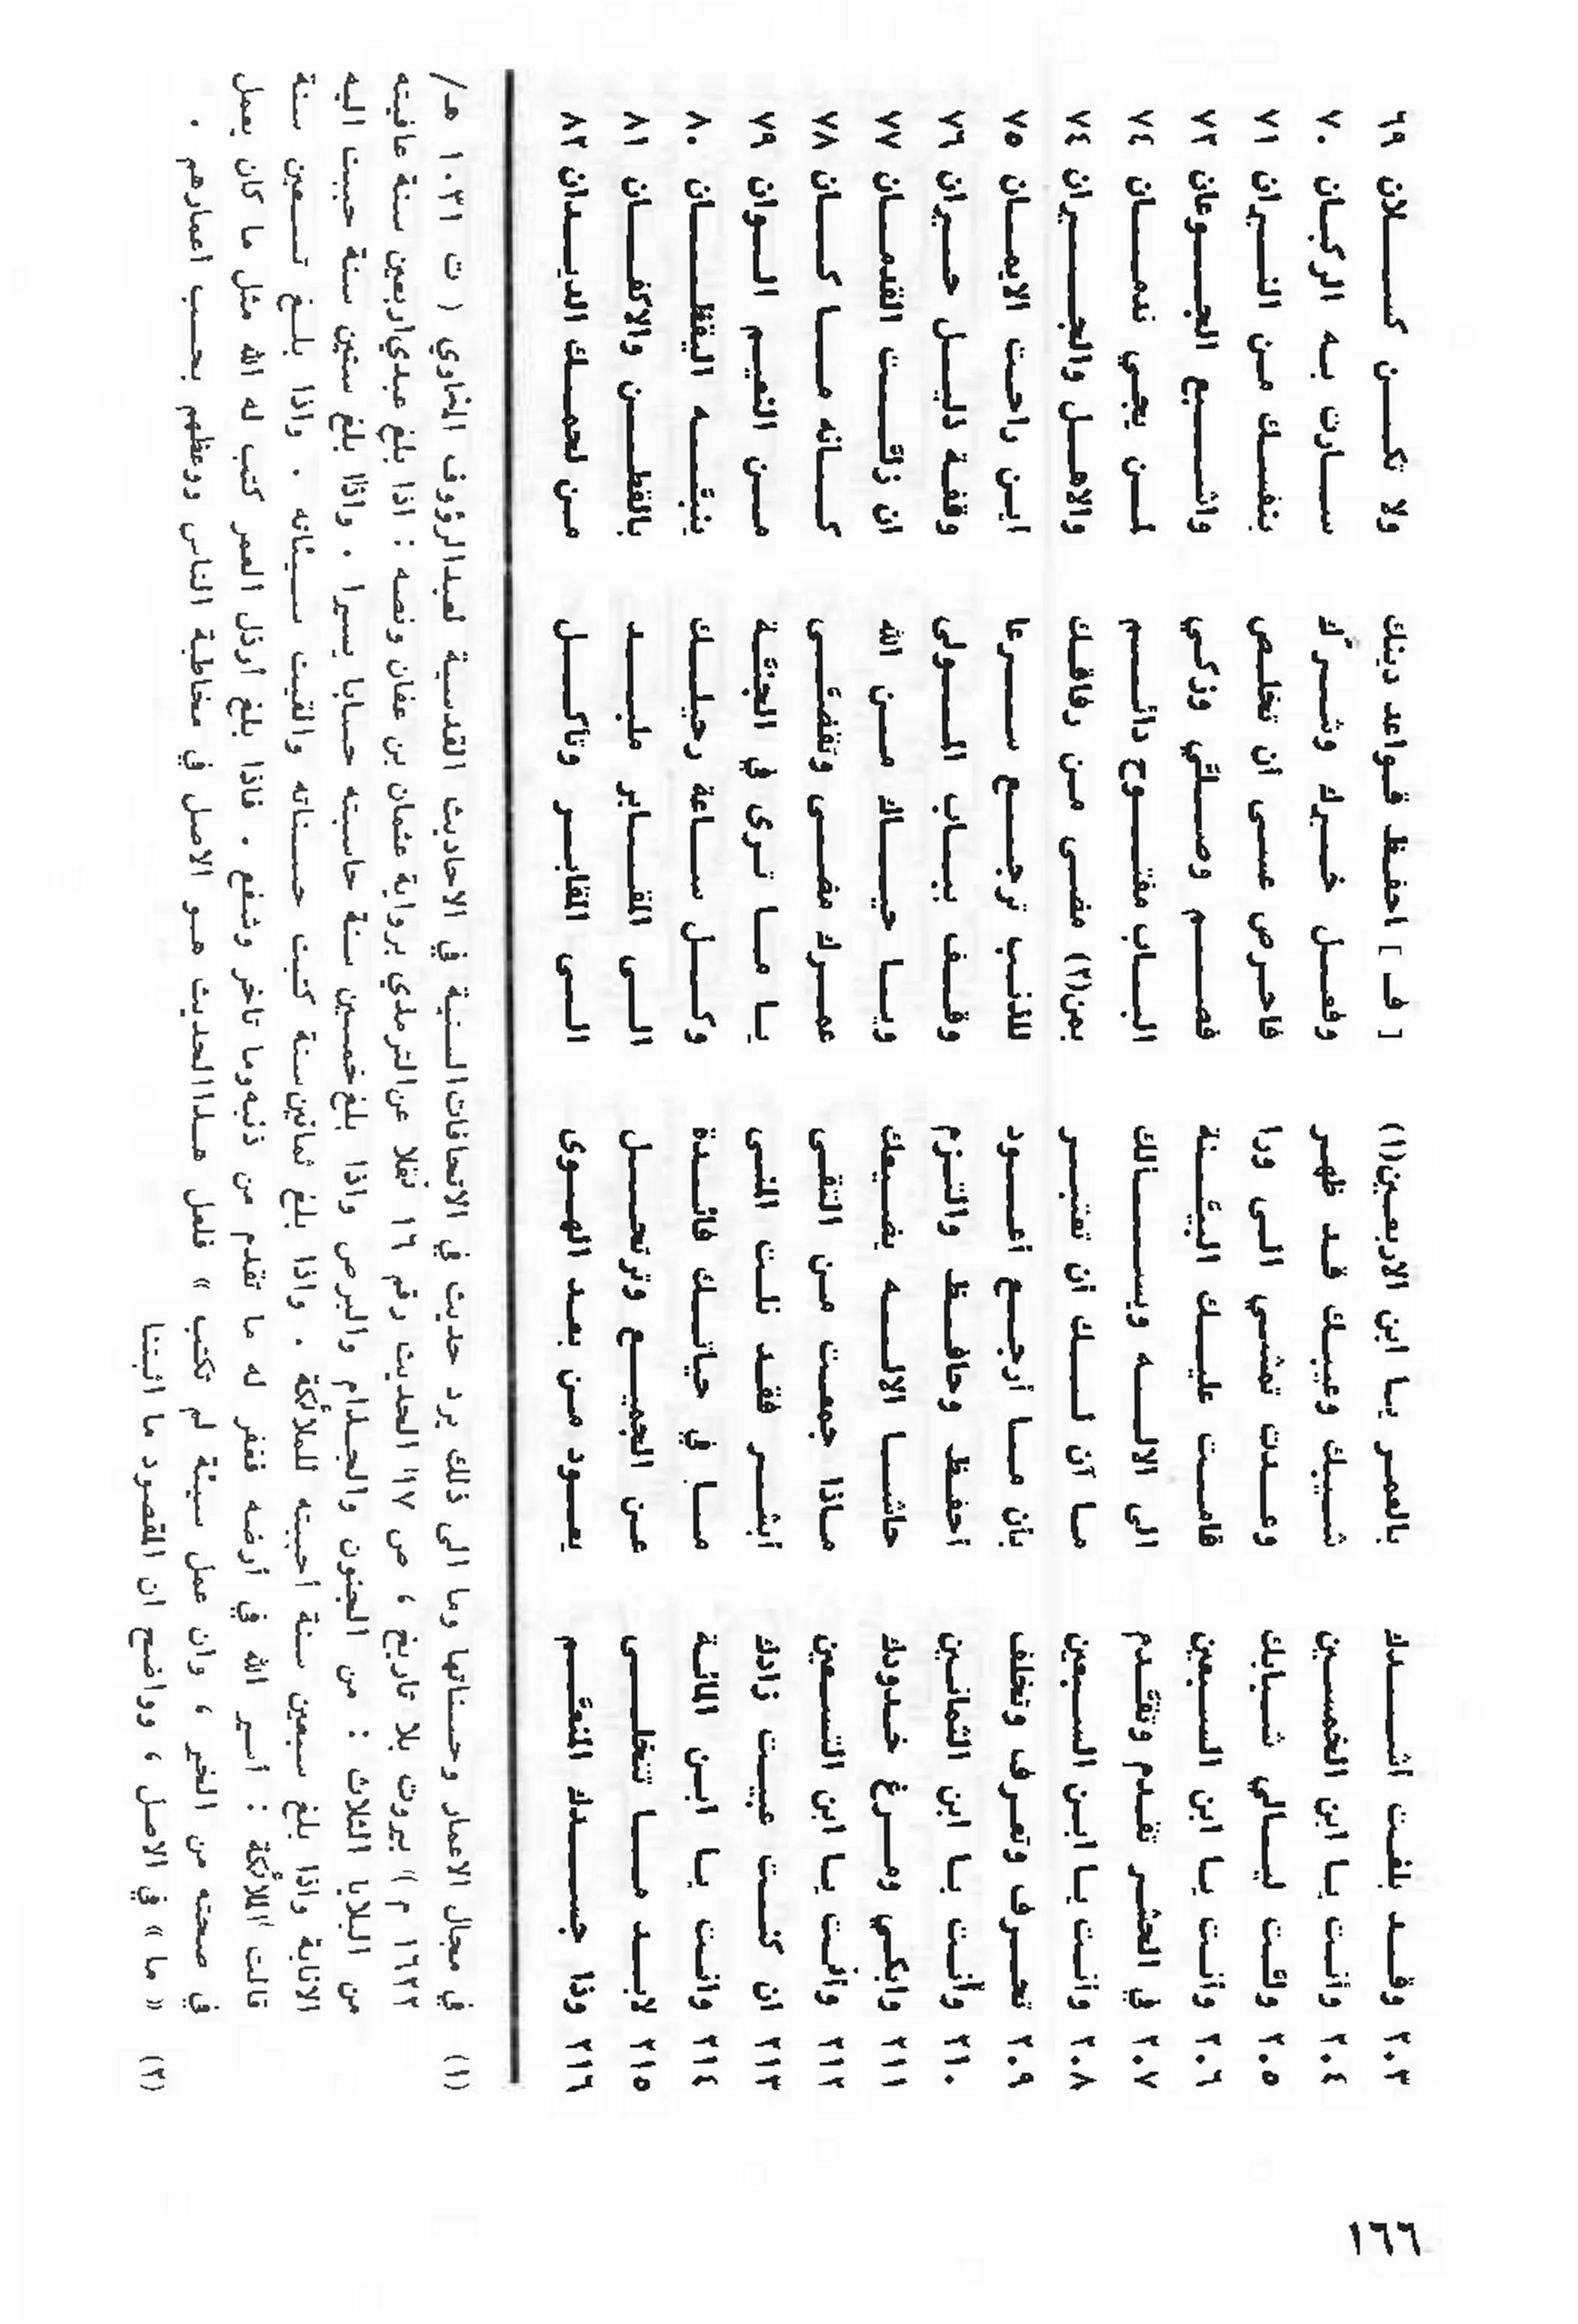 ١٦٦
٢٠٣ وقد بلغت اشدك بالعمر يا ابن الاربعين(١) [ فـ ] احفظ قواعد دينك ولا تكن كسلان ٦٩
٢٠٤ وأنت يا ابن الخمسين شيبك وعيبك قد ظهر وفعل خيرك وشرّك سارت به الركبان ٧٠
٢٠٥ ولّت ليالي شبابك وعدت تمشي الى ورا فاحرص عسى أن تخلص بنفسك من النيران ٧١
٢٠٦ وأنت يا ابن السبعين قامت عليك البيّنة فصم وصلّي وزكي واشبع الجوعان ٧٣
٢٠٧ في الحشر تقدم وتقّدم الى الاله ويسالك الباب مفتوح دائم لمن يجي ندمان ٧٤
٢٠٨ وأنت يا ابن السبعين ما آن لك أن تعتبر بمن(٢) مضى من رفاقك والاهل والجيران ٧٤
٢٠٩ تحرف وتعرف وتخلف بأن ما أرجع أعود للذنب ترجع سرعا اين راحت الايمان ٧٥
٢١٠ وأنت يا ابن الثمانين احفظ وحافظ والتزم وقف بباب المولى وقفة ذليل حيران ٧٦
٢١١ وابكي ومرغ خدودك حاشا الاله يضيعك ويا حياك من الله ان زلّت القدمان ٧٧
٢١٢ وأنت يا ابن التسعين ماذا جمعت من التقى عمرك مضى وتقضّى كانه ما كان ٧٨
٢١٣ ان كنت عبيت زادك أبشر فقد نلت المنى يا ما ترى في الجنّة من النعيم الوان ٧٩
٢١٤ وأنت يا ابن المائة ما في حياتك فائدة وكل ساعة رحيلك ينبّه اليقظان ٨٠
٢١٥ لابد ما تتخلى عن الجميع وترتحل الى المقابر ملبد بالقطن والاكفان ٨١
٢١٦ وذا جسدك المنعّم يعود من بعد الهوى الى المقابر وتأكل من لحمك الديدان ٨٢
(١) في مجال الاعمار وحسناتها وما الى ذلك يرد حديث في الاتحافات السنية في الاحاديث القدسية لعبدالرؤوف المناوي ( ت ١٠٣١ هـ/
١٦٢٢ م ) بيروت بلا تاريخ ، ص ١٧ الحديث رقم ١٦ نقلا عن الترمذي برواية عثمان بن عفان ونصه : اذا بلغ عبدي اربعين سنة عافيته
من البلايا الثلاث : من الجنون والجذام والبرص واذا بلغ خمسين سنة حاسبته حسابا يسيرا . واذا بلغ ستين سنة حببت اليه
الانابة واذا بلغ سبعين سنة احببته للملائكة . واذا بلغ ثمانين سنة كتبت حسناته والقيت سيئاته . واذا بلغ تسعين سنة
قالت الملائكة : اسير الله في أرضه فغفر له ما تقدم من ذنبه وما تاخر وشفع . فاذا بلغ ارذل العمر كتب له الله مثل ما كان يعمل
في صحته من الخير ، وان عمل سيئة لم تكتب » فلعل هذا الحديث هو الاصل في مخاطبة الناس ووعظهم بحسب اعمارهم .
(٢) « ما » في الاصل ، وواضح ان المقصود ما اثبتنا